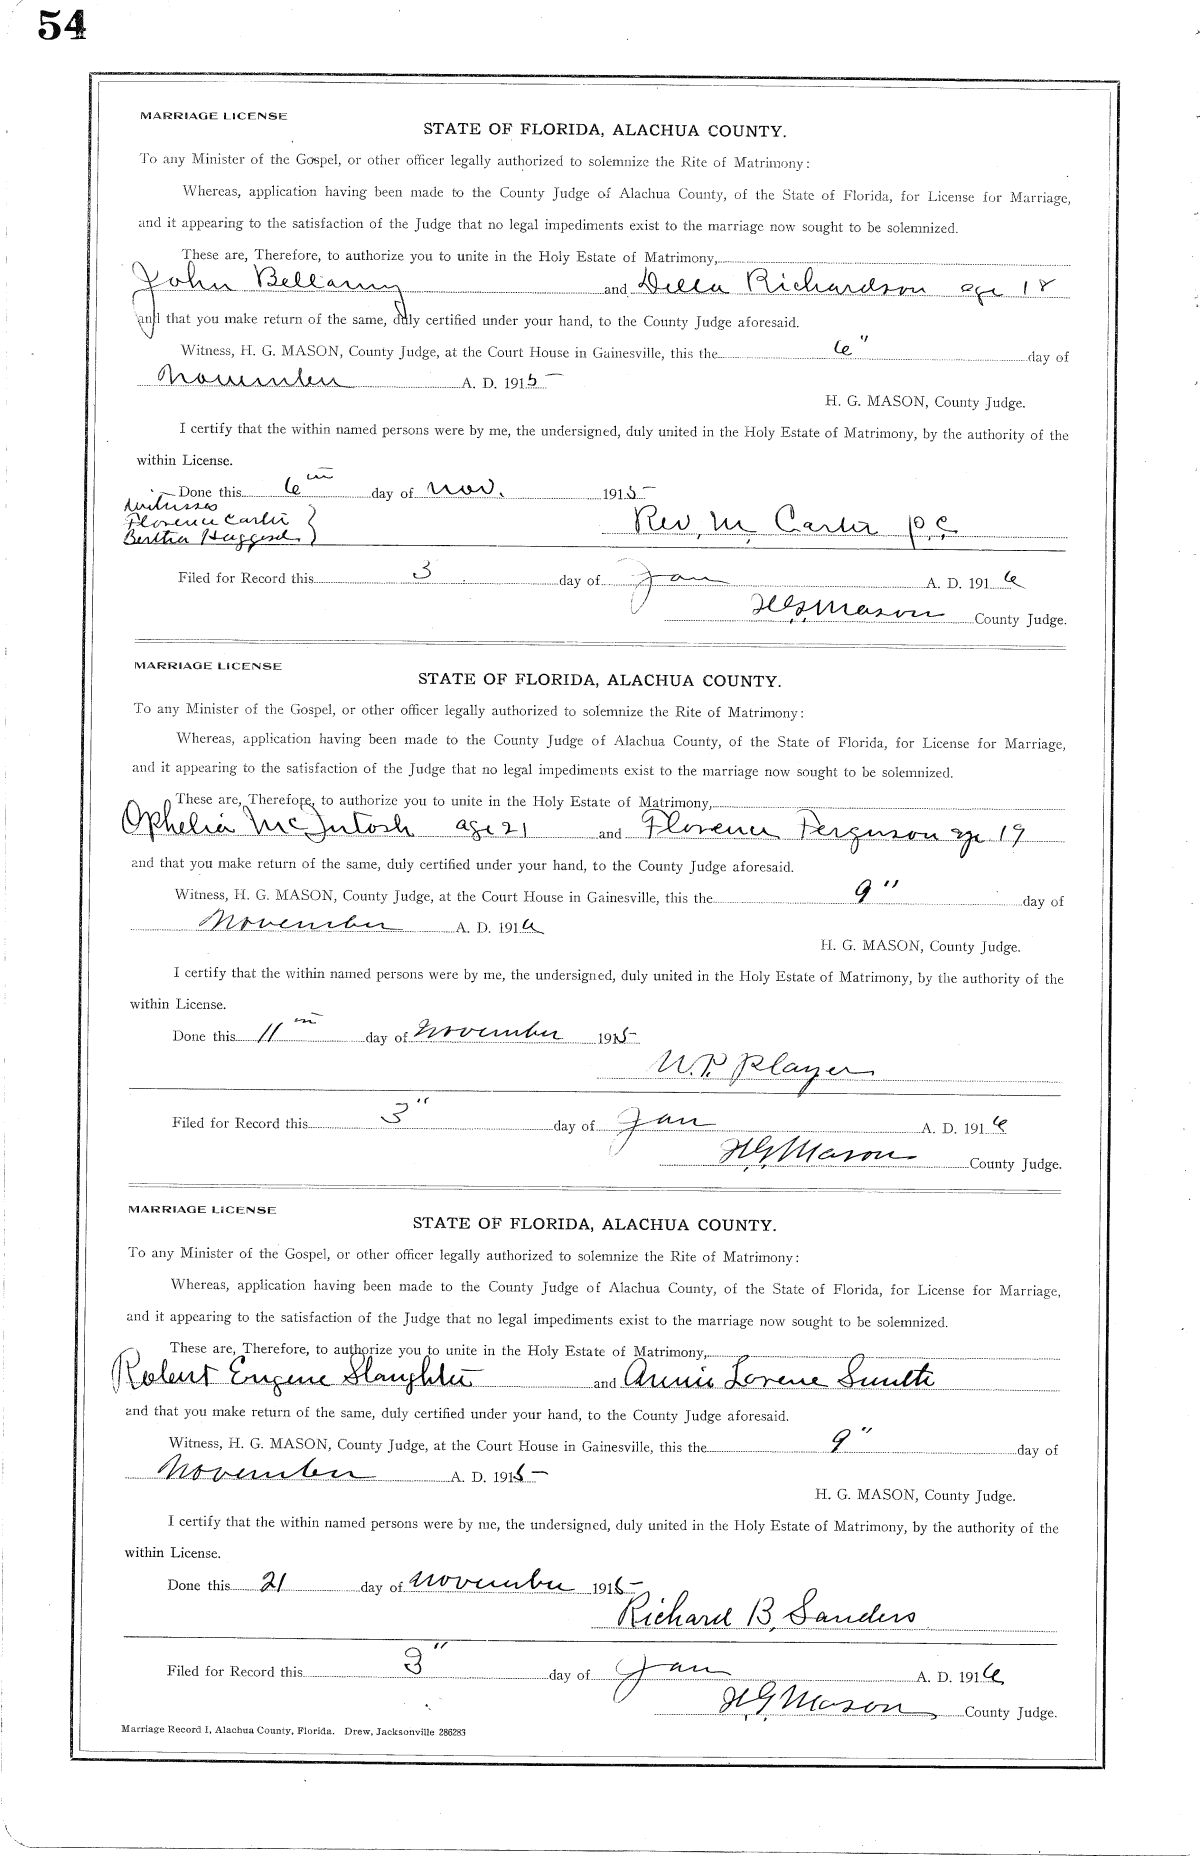 54
MARRIAGE LICENSE
STATE OF FLORIDA, ALACHUA COUNTY.
To any Minister of the Gospel, or other officer legally authorized to solemnize the Rite of Matrimony:
Whereas, application having been made to the County Judge of Alachua County, of the State of Florida, for License for Marriage,
and it appearing to the satisfaction of the Judge that no legal impediments exist to the marriage now sought to be solemnized.
These are, Therefore, to authorize you to unite in the Holy Estate of Matrimony,
John Bellamy and Della Richardson age 18
and that you make return of the same, duly certified under your hand, to the County Judge aforesaid.
Witness, H. G. MASON, County Judge, at the Court House in Gainesville, this the 6" day of
November A. D. 1915
H. G. MASON, County Judge.
I certify that the within named persons were by me, the undersigned, duly united in the Holy Estate of Matrimony, by the authority of the
within License.
Done this 6th day of Nov. 1915
Witnesses
Florence Carter
Bertha
Rev. M. Carter P.C.
Filed for Record this 3 day of Jan A. D. 1916
H.G. Mason County Judge.
MARRIAGE LICENSE
STATE OF FLORIDA, ALACHUA COUNTY.
To any Minister of the Gospel, or other officer legally authorized to solemnize the Rite of Matrimony:
Whereas, application having been made to the County Judge of Alachua County, of the State of Florida, for License for Marriage,
and it appearing to the satisfaction of the Judge that no legal impediments exist to the marriage now sought to be solemnized.
These are, Therefore, to authorize you to unite in the Holy Estate of Matrimony,
Ophelia McIntosh age 21 and Florence Ferguson age 19
and that you make return of the same, duly certified under your hand, to the County Judge aforesaid.
Witness, H. G. MASON, County Judge, at the Court House in Gainesville, this the 9" day of
November A. D. 1916
H. G. MASON, County Judge.
I certify that the within named persons were by me, the undersigned, duly united in the Holy Estate of Matrimony, by the authority of the
within License.
Done this 11th day of November 1915
W.P. Player
Filed for Record this 3" day of Jan A. D. 1916
H.G. Mason County Judge.
MARRIAGE LICENSE
STATE OF FLORIDA, ALACHUA COUNTY.
To any Minister of the Gospel, or other officer legally authorized to solemnize the Rite of Matrimony:
Whereas, application having been made to the County Judge of Alachua County, of the State of Florida, for License for Marriage,
and it appearing to the satisfaction of the Judge that no legal impediments exist to the marriage now sought to be solemnized.
These are, Therefore, to authorize you to unite in the Holy Estate of Matrimony,
Robert Eugene Slaughter and Annie Lorene Smith
and that you make return of the same, duly certified under your hand, to the County Judge aforesaid.
Witness, H. G. MASON, County Judge, at the Court House in Gainesville, this the 9" day of
November A. D. 1915
H. G. MASON, County Judge.
I certify that the within named persons were by me, the undersigned, duly united in the Holy Estate of Matrimony, by the authority of the
within License.
Done this 21 day of November 1915
Richard B. Sanders
Filed for Record this 3" day of Jan A. D. 1916
H.G. Mason County Judge.
Marriage Record I, Alachua County, Florida. Drew, Jacksonville 286283